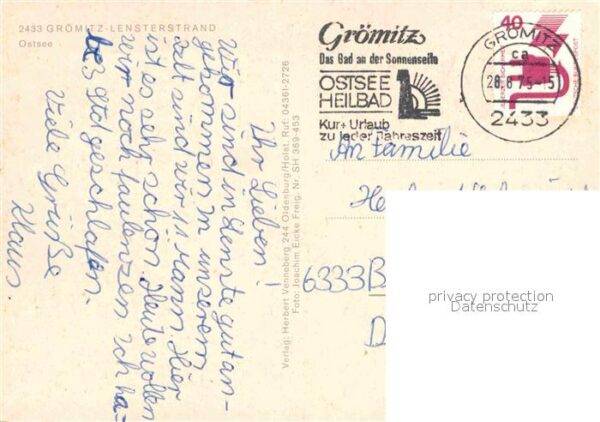 2433 GRÖMITZ-LENSTERSTRAND
Ostsee
Ihr Lieben!
Wir sind in Lenste gut an-
gekommen. In unserem
Zelt sind wir 11 Mann. Hier
ist es sehr schön. Heute wollen
wir noch faulenzen. Ich ha-
be 3 Std geschlafen.
Viele Grüße
Klaus.
Verlag: Herbert Venneberg 244 Oldenburg/Holst. Ruf: 04361-2726
Foto: Joachim Eicke Freig. Nr. SH 369-453
Grömitz
Das Bad an der Sonnenseite
OSTSEE
HEILBAD
Kur + Urlaub
zu jeder Jahreszeit
40
GRÖMITZ
ca
28.8.75-15
2433
An Familie
6333 B
D
privacy protection
Datenschutz